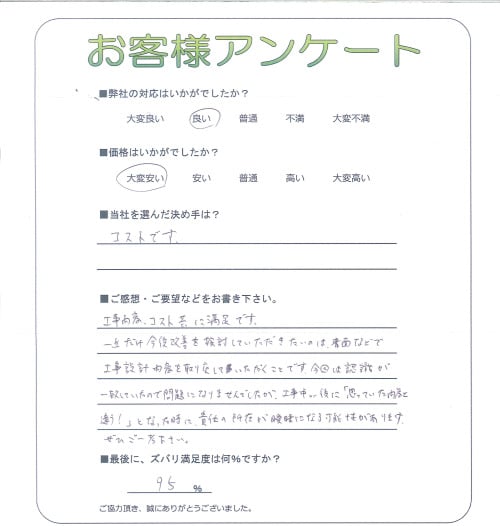 お客様アンケート
■弊社の対応はいかがでしたか？
大変良い 良い 普通 不満 大変不満
■価格はいかがでしたか？
大変安い 安い 普通 高い 大変高い
■当社を選んだ決め手は？
コストです。
■ご感想・ご要望などをお書き下さい。
工事内容、コスト共に満足です。
一点だけ今後改善を検討していただきたいのは、書面などで
工事設計内容を取り交して いただくことです。今回は認識が
一致していたので問題になりませんでしたが、工事中や後に「思っていた内容と
違う！」となった時に、責任の所在が曖昧になる可能性があります。
ぜひご一考下さい。
■最後に、ズバリ満足度は何%ですか？
95 %
ご協力頂き、誠にありがとうございました。